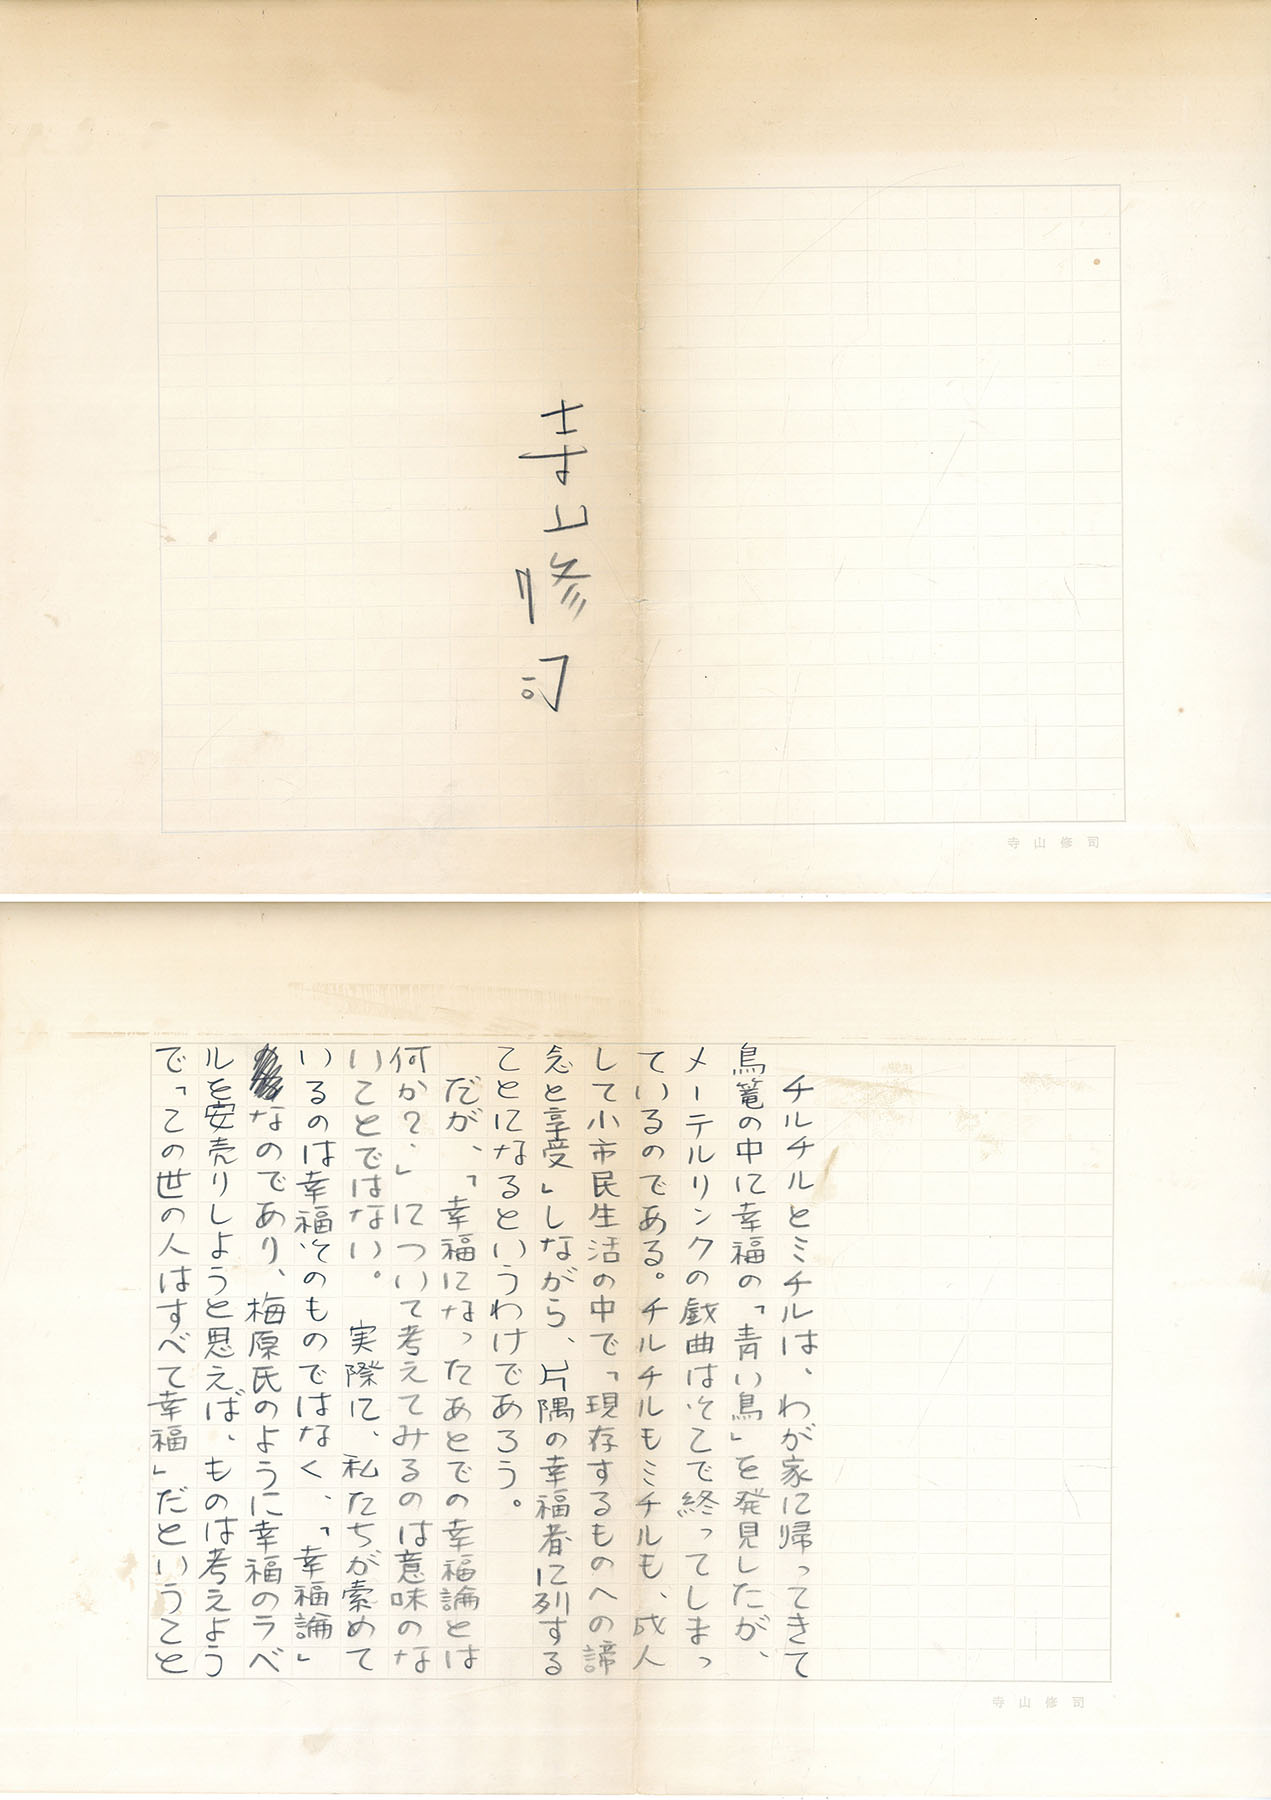 寺山修司
寺山修司
チルチルとミチルは、わが家に帰ってきて
鳥篭の中に幸福の「青い鳥」を発見したが、
メーテルリンクの戯曲はそこで終ってしまっ
ているのである。チルチルもミチルも、成人
して小市民生活の中で「現存するものへの諦
念と享受」しながら、片隅の幸福者に列する
ことになるというわけであろう。
だが、「幸福になったあとでの幸福論とは
何か?」について考えてみるのは意味のな
いことではない。　実際に、私たちが索めて
いるのは幸福そのものではなく、「幸福論」
なのであり、梅原氏のように幸福のラベ
ルを安売りしようと思えば、ものは考えよう
で「この世の人はすべて幸福」だということ
寺山修司